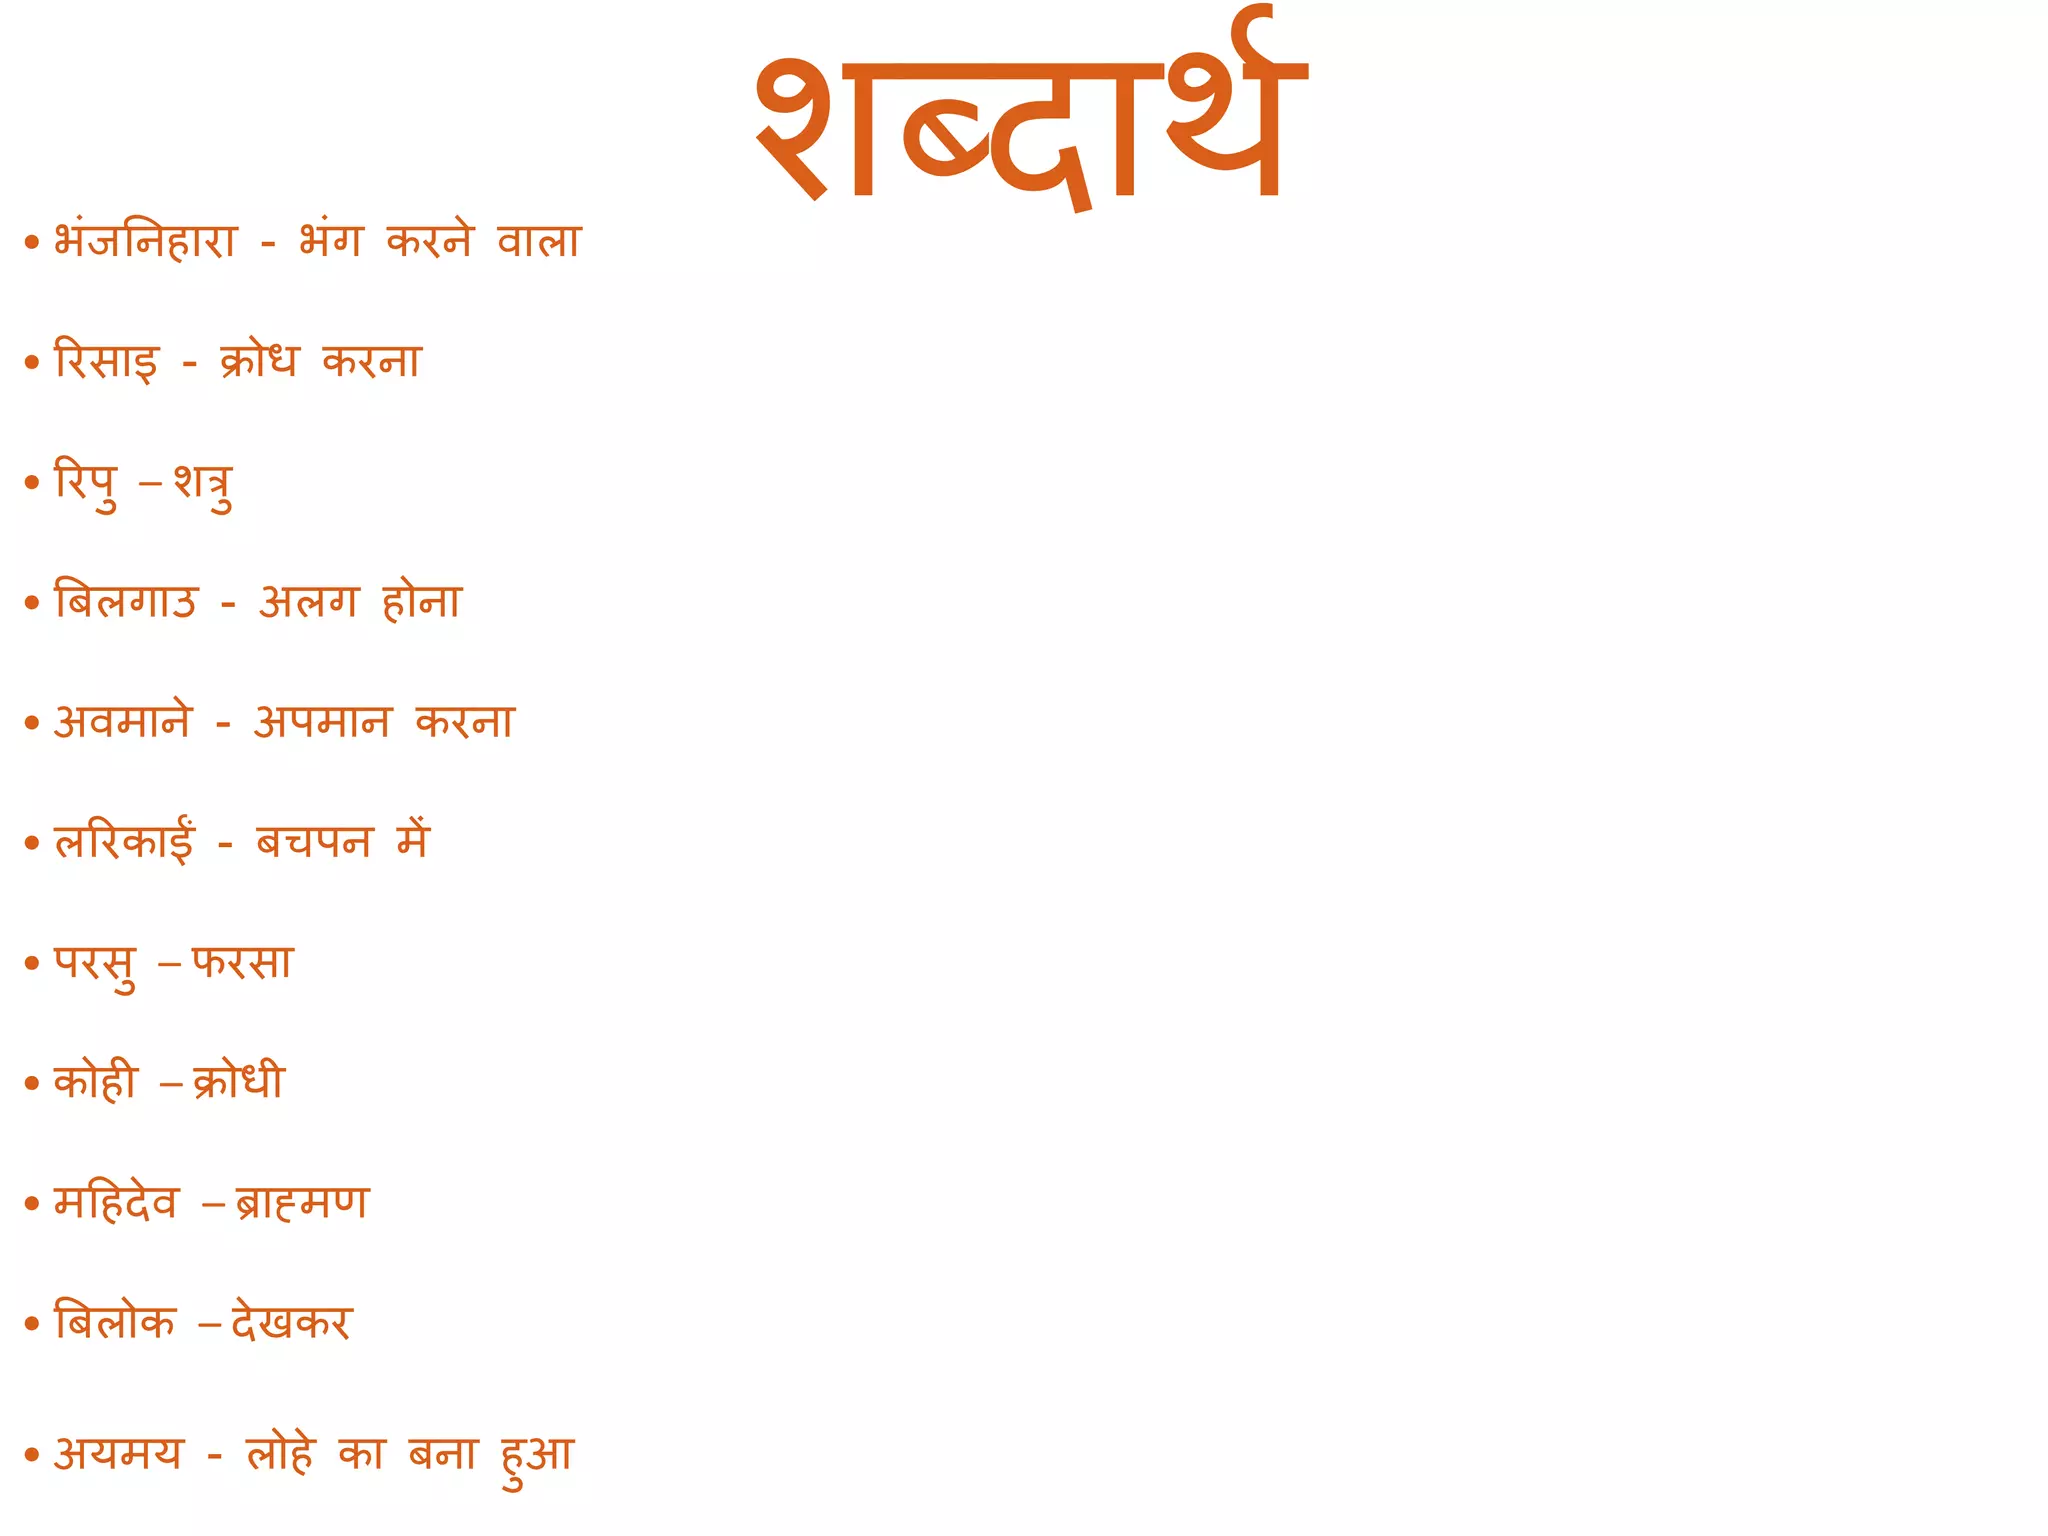 शब्दार्थ
• भंजनिहारा - भंग करने वाला
• रिसाइ - क्रोध करना
• रिपु – शत्रु
• बिलगाउ - अलग होना
• अवमाने - अपमान करना
• लरिकाईं - बचपन में
• परसु – फरसा
• कोही – क्रोधी
• महिदेव – ब्राह्मण
• बिलोक – देखकर
• अयमय - लोहे का बना हुआ